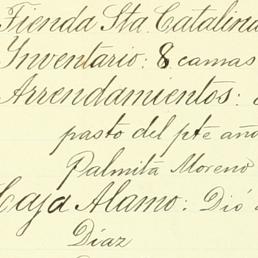 Tienda Sta. Catalina
Inventario: 8 camas
Arrendamientos:
pasto del pte año
Palmita Moreno
Caja Alamo: Dió
Diaz